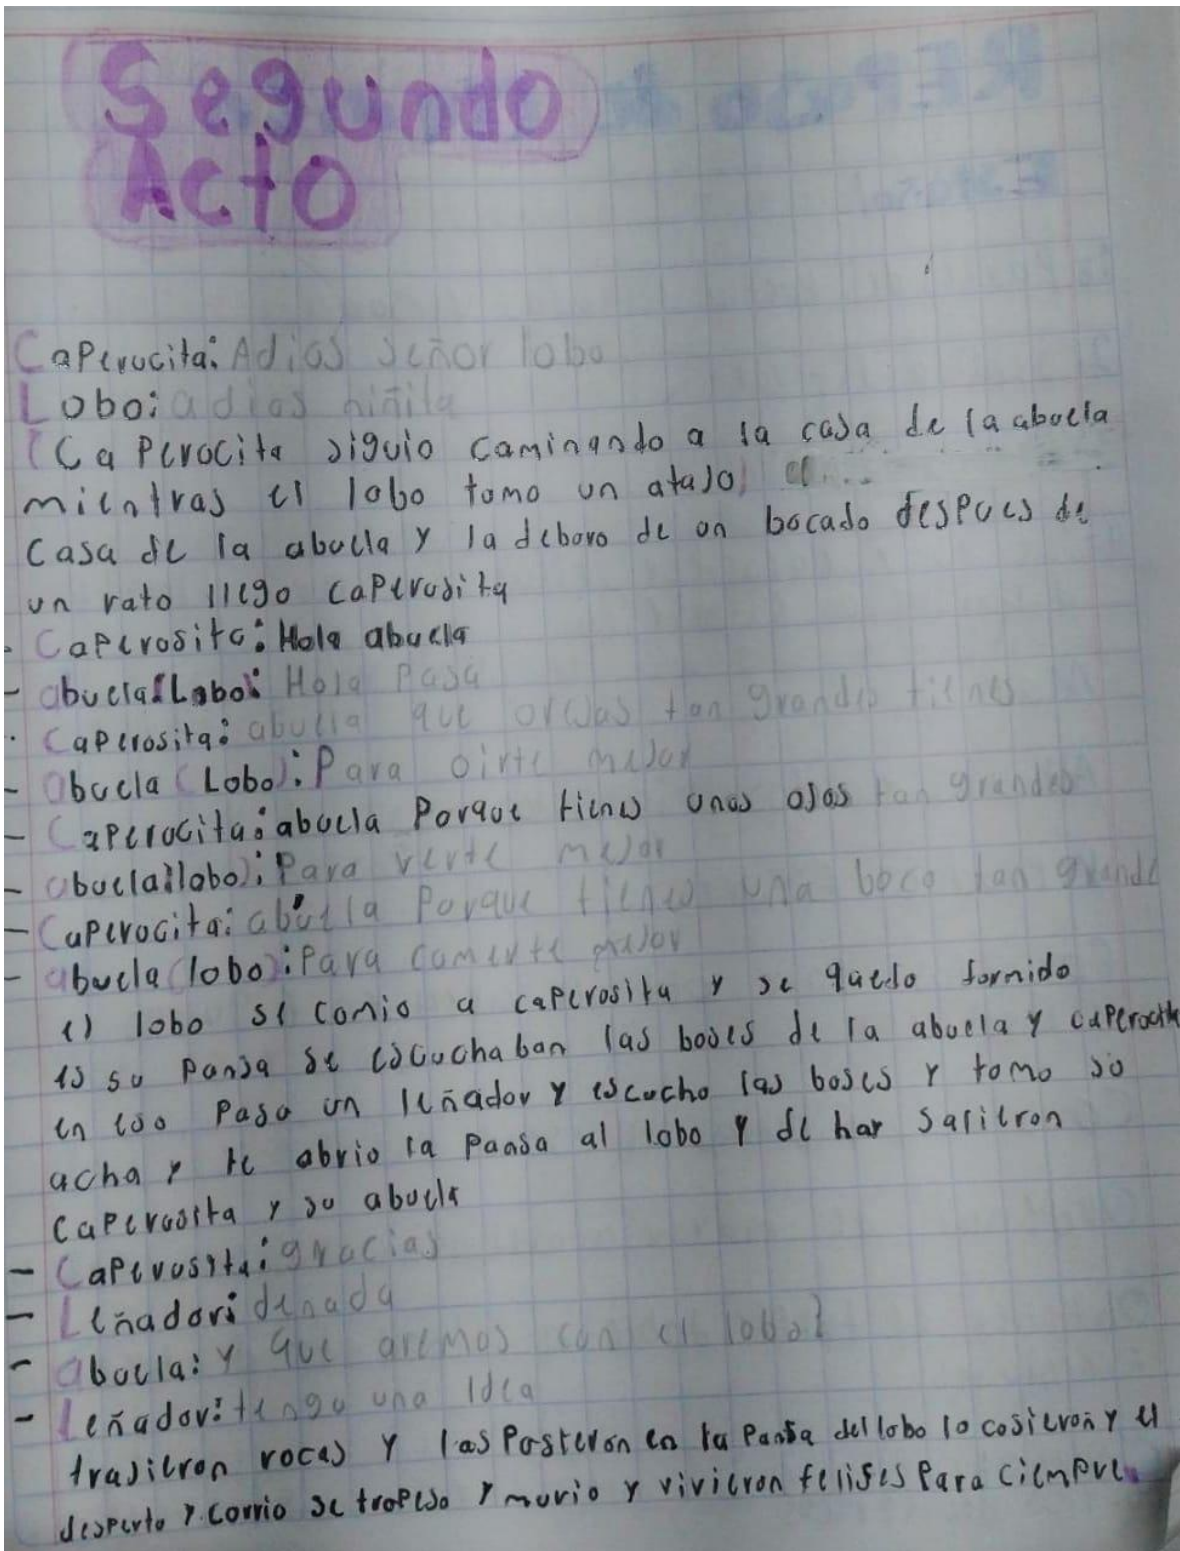 Segundo
Acto
Caperucita: Adios señor lobo
Lobo: adios niñita
(Caperocita siguio caminando a la casa de la abuela
mientras el lobo tomo un atajo
casa de la abuela y la deboro de un bocado despues de
un rato llego caperusita
- Caperosita: Hola abuela
- abuela(Lobo): Hola Pasa
- Caperosita: abuela que orejas tan grandes tienes
- abuela (Lobo): Para oirte mejor
- Caperocita: abuela Porque tienes unos ojos tan grandes
- abuela(lobo): Para verte mejor
- Caperocita: abuela Porque tienes una boca tan grande
- abuela (lobo): Para comerte mejor
el lobo se comio a caperosita y se quedo formido
su pansa se escuchaban las boses de la abuela y caperocita
en eso Paso un leñador y escucho las boses y tomo su
acha y le abrio la pansa al lobo y de hay salieron
caperusita y su abuela
- Caperusita: gracias
- Leñador: denada
- abuela: y que aremos con el lobo?
- leñador: tengo una idea
trajieron rocas y las Posieron en la Pansa del lobo lo cosieron y el
desperto y corrio se tropeso y murio y vivieron felises Para ciempre